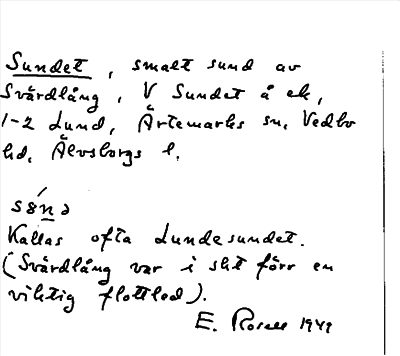 Sundet, smalt sund av
Svärdlång, V Sundet å ek,
1-2 Lund, Ärtemarks sn, Vedbo
hd, Älvsborgs l.
sén̲ə
Kallas ofta Lundesundet.
(Svärdlång var i sht förr en
viktig flottled).
E. Rosell 1949